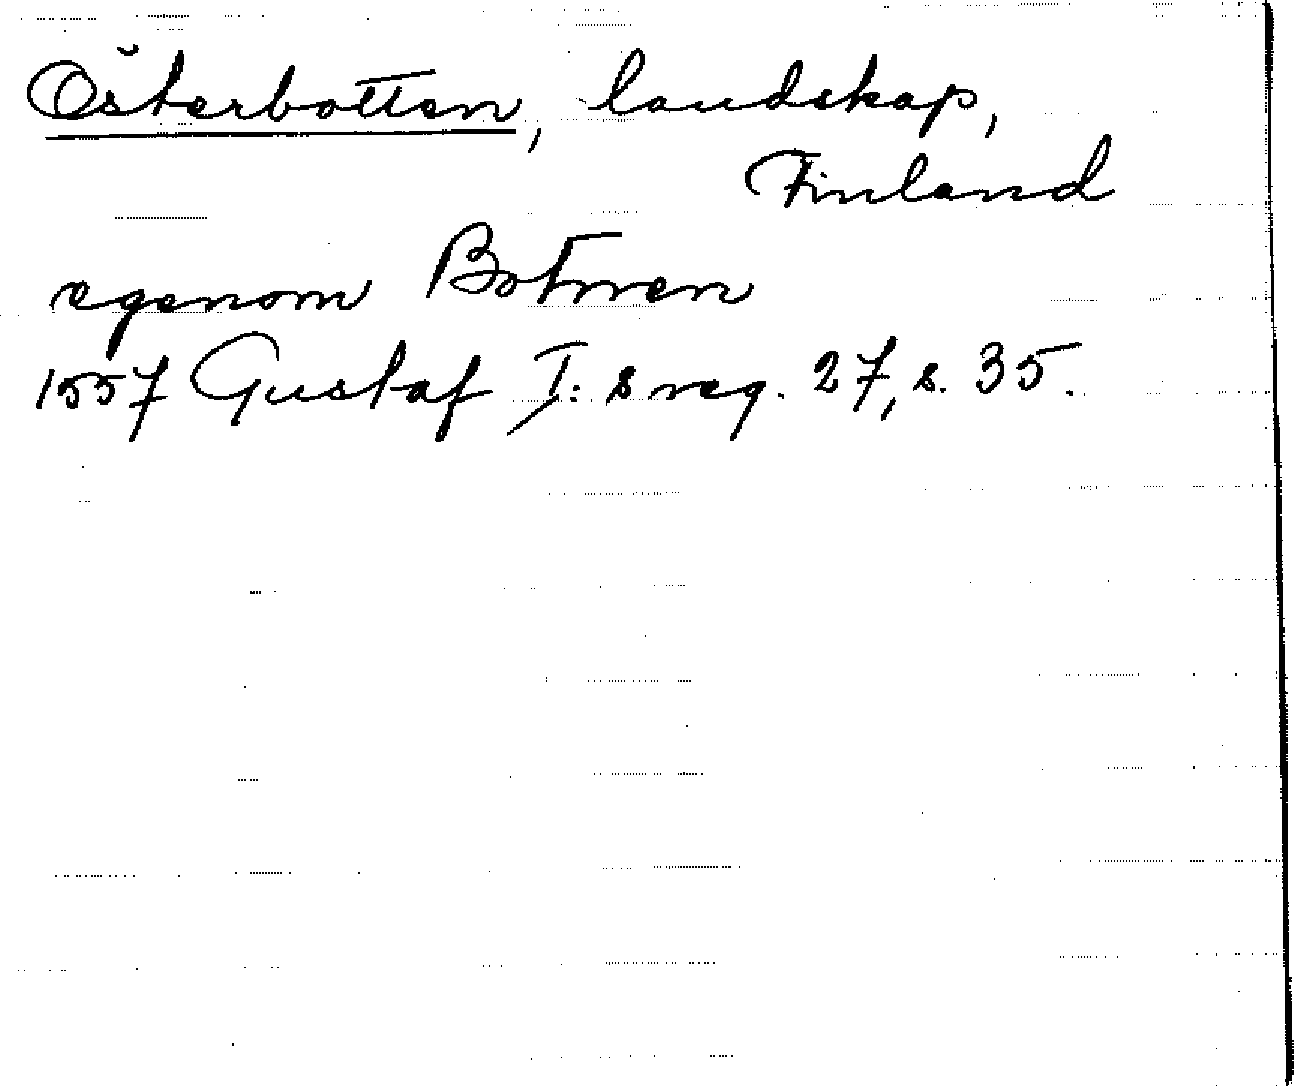 Österbotten, landskap,
Finland
egenom Botnen
1557 Gustaf I:s reg. 27, s. 35.